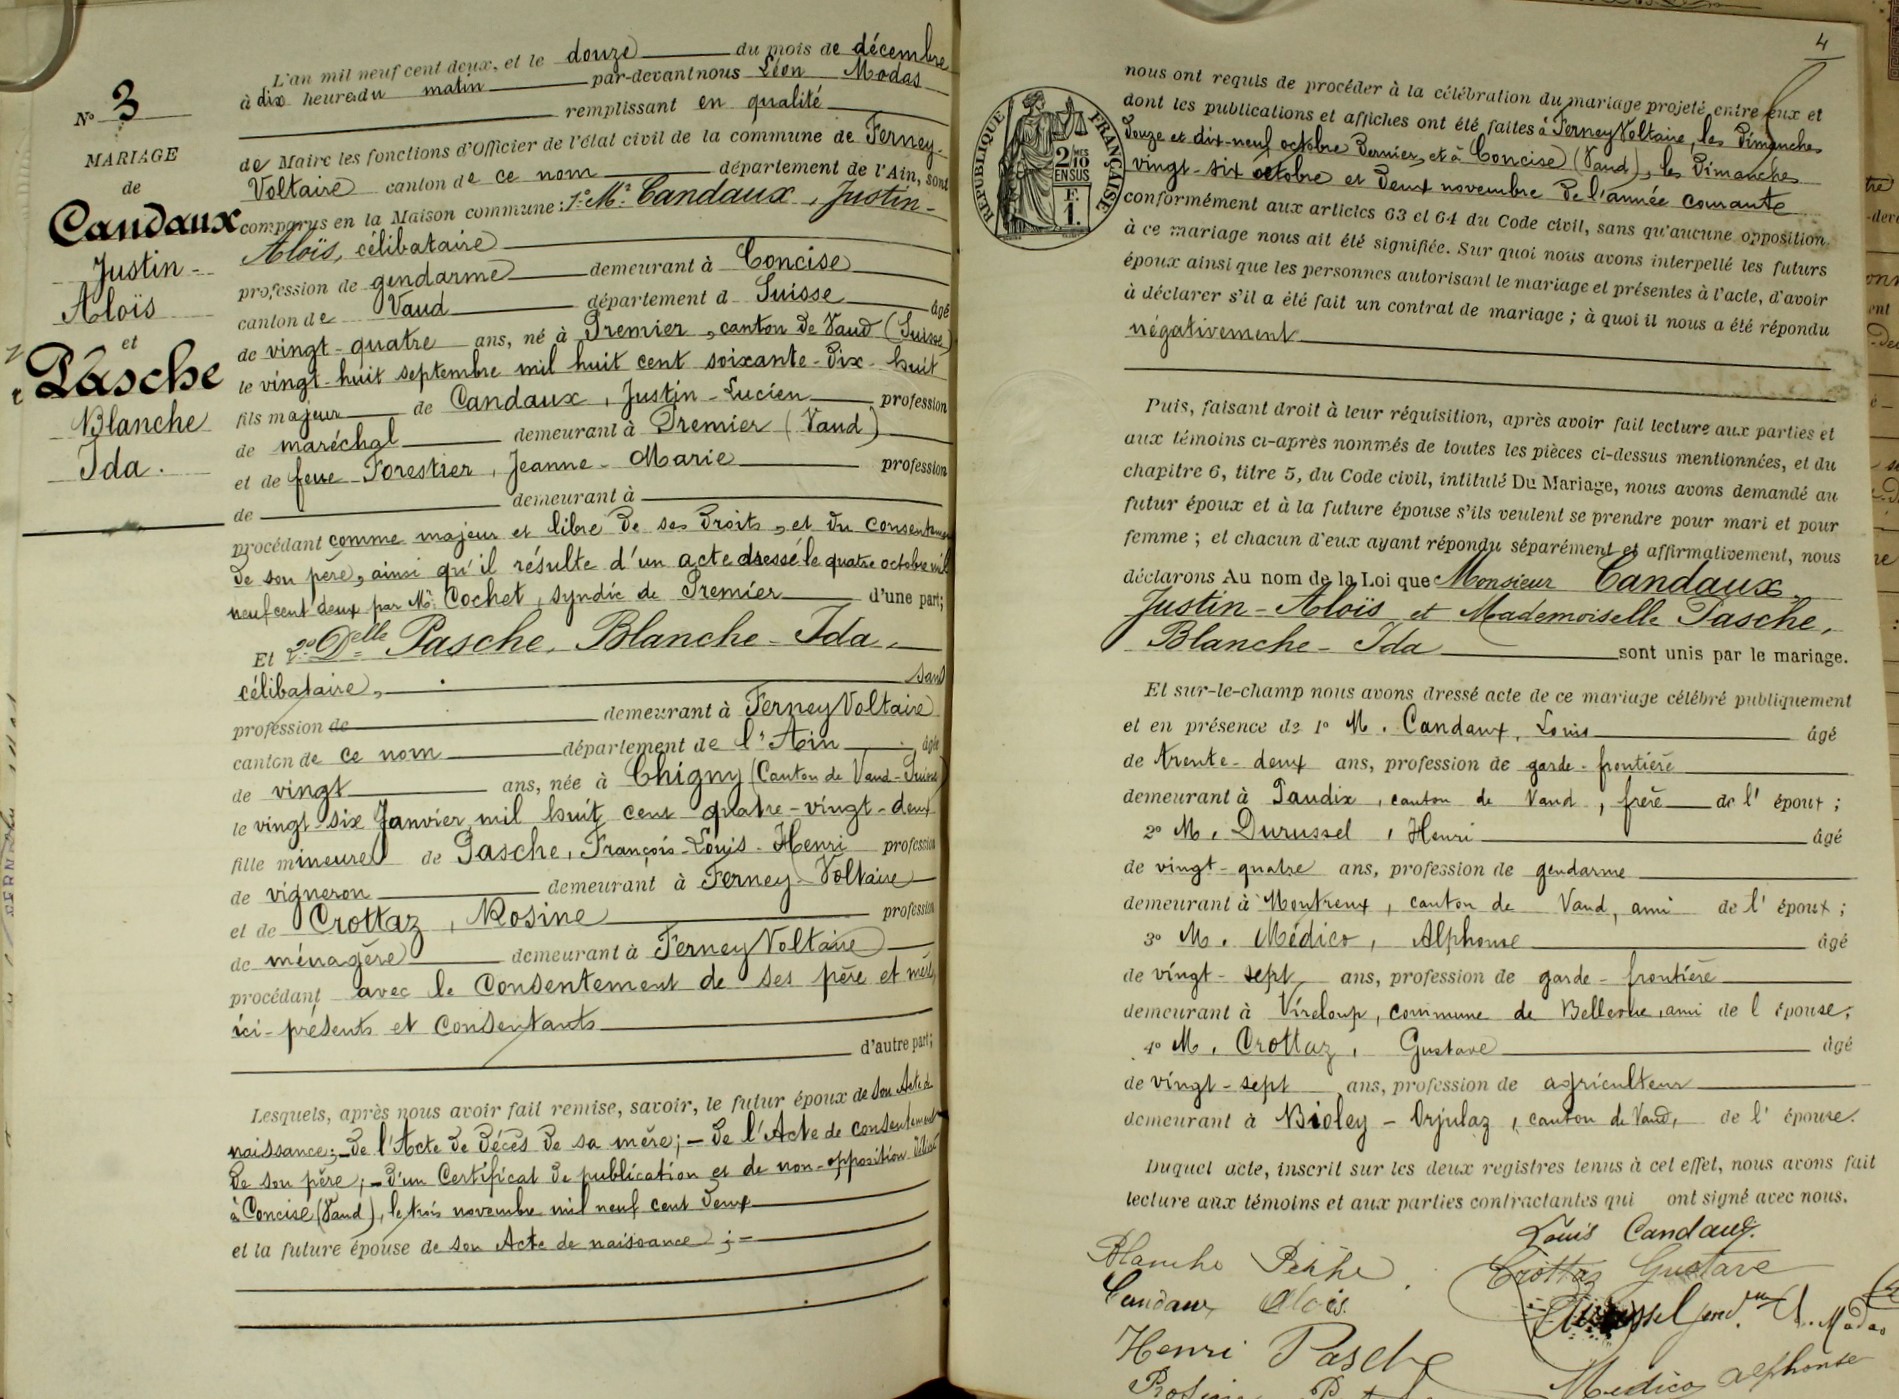 N° 3
MARIAGE
de
Candaux
Justin-
Aloïs
et
Pasche
Blanche
Ida.
L'an mil neuf cent deux, et le douze du mois de décembre
à dix heures du matin par-devant nous Léon Modas
remplissant en qualité
de Maire les fonctions d'Officier de l'état civil de la commune de Ferney-
Voltaire canton de ce nom département de l'Ain, sont
comparus en la Maison commune : 1° Mr Candaux, Justin-
Aloïs, célibataire
profession de gendarme demeurant à Concise
canton de Vaud département d Suisse âgé
de vingt-quatre ans, né à Premier, canton de Vaud (Suisse)
le vingt-huit septembre mil huit cent soixante-dix-huit
fils majeur de Candaux, Justin-Lucien profession
de maréchal demeurant à Premier (Vaud)
et de feue Forestier, Jeanne-Marie profession
de demeurant à
procédant comme majeur et libre de ses droits, et du consentement
de son père, ainsi qu'il résulte d'un acte dressé le quatre octobre mil
neuf cent deux par Mr Cochet, syndic de Premier d'une part;
Et 2° Delle Pasche, Blanche-Ida,
célibataire, sans
profession de demeurant à Ferney Voltaire
canton de ce nom département de l'Ain âgée
de vingt ans, née à Chigny (Canton de Vaud-Suisse)
le vingt-six Janvier mil huit cent quatre-vingt-deux
fille mineure de Pasche, François-Louis-Henri profession
de vigneron demeurant à Ferney-Voltaire
et de Crottaz, Rosine profession
de ménagère demeurant à Ferney Voltaire
procédant avec le consentement de ses père et mère,
ici-présents et consentants
d'autre part;
Lesquels, après nous avoir fait remise, savoir, le futur époux de son Acte de
naissance;-de l'Acte de décès de sa mère;-de l'Acte de consentement
de son père;-d'un Certificat de publication et de non-opposition délivré
à Concise (Vaud), le trois novembre mil neuf cent deux
et la future épouse de son Acte de naissance;-
4
RÉPUBLIQUE FRANÇAISE
2/10 MES
EN SUS
F.
1.
nous ont requis de procéder à la célébration du mariage projeté entre eux et
dont les publications et affiches ont été faites à Ferney Voltaire, les Dimanches
douze et dix-neuf octobre dernier, et à Concise (Vaud), les Dimanches
vingt-six octobre et deux novembre de l'année courante
conformément aux articles 63 et 64 du Code civil, sans qu'aucune opposition
à ce mariage nous ait été signifiée. Sur quoi nous avons interpellé les futurs
époux ainsi que les personnes autorisant le mariage et présentes à l'acte, d'avoir
à déclarer s'il a été fait un contrat de mariage ; à quoi il nous a été répondu
négativement
Puis, faisant droit à leur réquisition, après avoir fait lecture aux parties et
aux témoins ci-après nommés de toutes les pièces ci-dessus mentionnées, et du
chapitre 6, titre 5, du Code civil, intitulé Du Mariage, nous avons demandé au
futur époux et à la future épouse s'ils veulent se prendre pour mari et pour
femme ; et chacun d'eux ayant répondu séparément et affirmativement, nous
déclarons Au nom de la Loi que Monsieur Candaux,
Justin-Aloïs et Mademoiselle Pasche,
Blanche-Ida sont unis par le mariage.
Et sur-le-champ nous avons dressé acte de ce mariage célébré publiquement
et en présence de 1° M. Candaux, Louis âgé
de trente-deux ans, profession de garde-frontière
demeurant à Paudix, canton de Vaud, frère de l'époux;
2° M. Durussel, Henri âgé
de vingt-quatre ans, profession de gendarme
demeurant à Montreux, canton de Vaud, ami de l'époux;
3° M. Médico, Alphonse âgé
de vingt-sept ans, profession de garde-frontière
demeurant à Vireloup, commune de Bellevue, ami de l épouse;
4° M. Crottaz, Gustave âgé
de vingt-sept ans, profession de agriculteur
demeurant à Bioley-Orjulaz, canton de Vaud, de l'épouse.
Duquel acte, inscrit sur les deux registres tenus à cet effet, nous avons fait
lecture aux témoins et aux parties contractantes qui ont signé avec nous.
Louis Candaux.
Blanche Pasche
Crottaz Gustave
Candaux Aloïs.
Durussel gend. L. Modas
Henri Pasche
Medico alphonse
Rosine